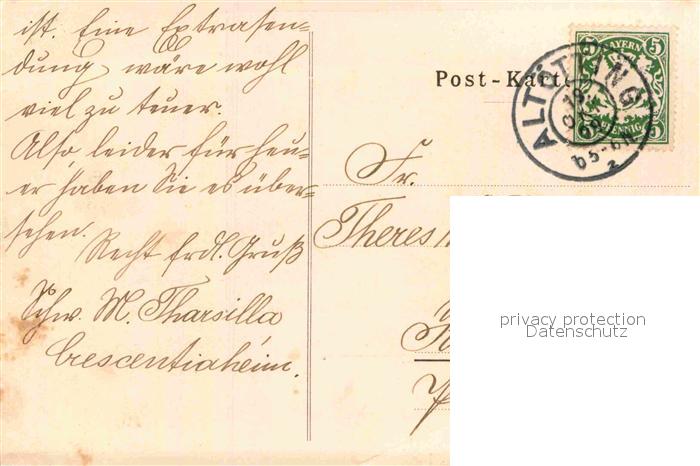 ist. Eine Extrasen=
dung wäre wohl
viel zu teuer.
Also leider für heu=
er haben Sie es über=
sehen.
Recht frdl. Gruß
Schw. M. Tharsilla
Crescentiaheim.
Post-Karte
BAYERN
5 5
PFENNIG
ALTÖTTING
19
09
2
Fr.
Theres
privacy protection
Datenschutz